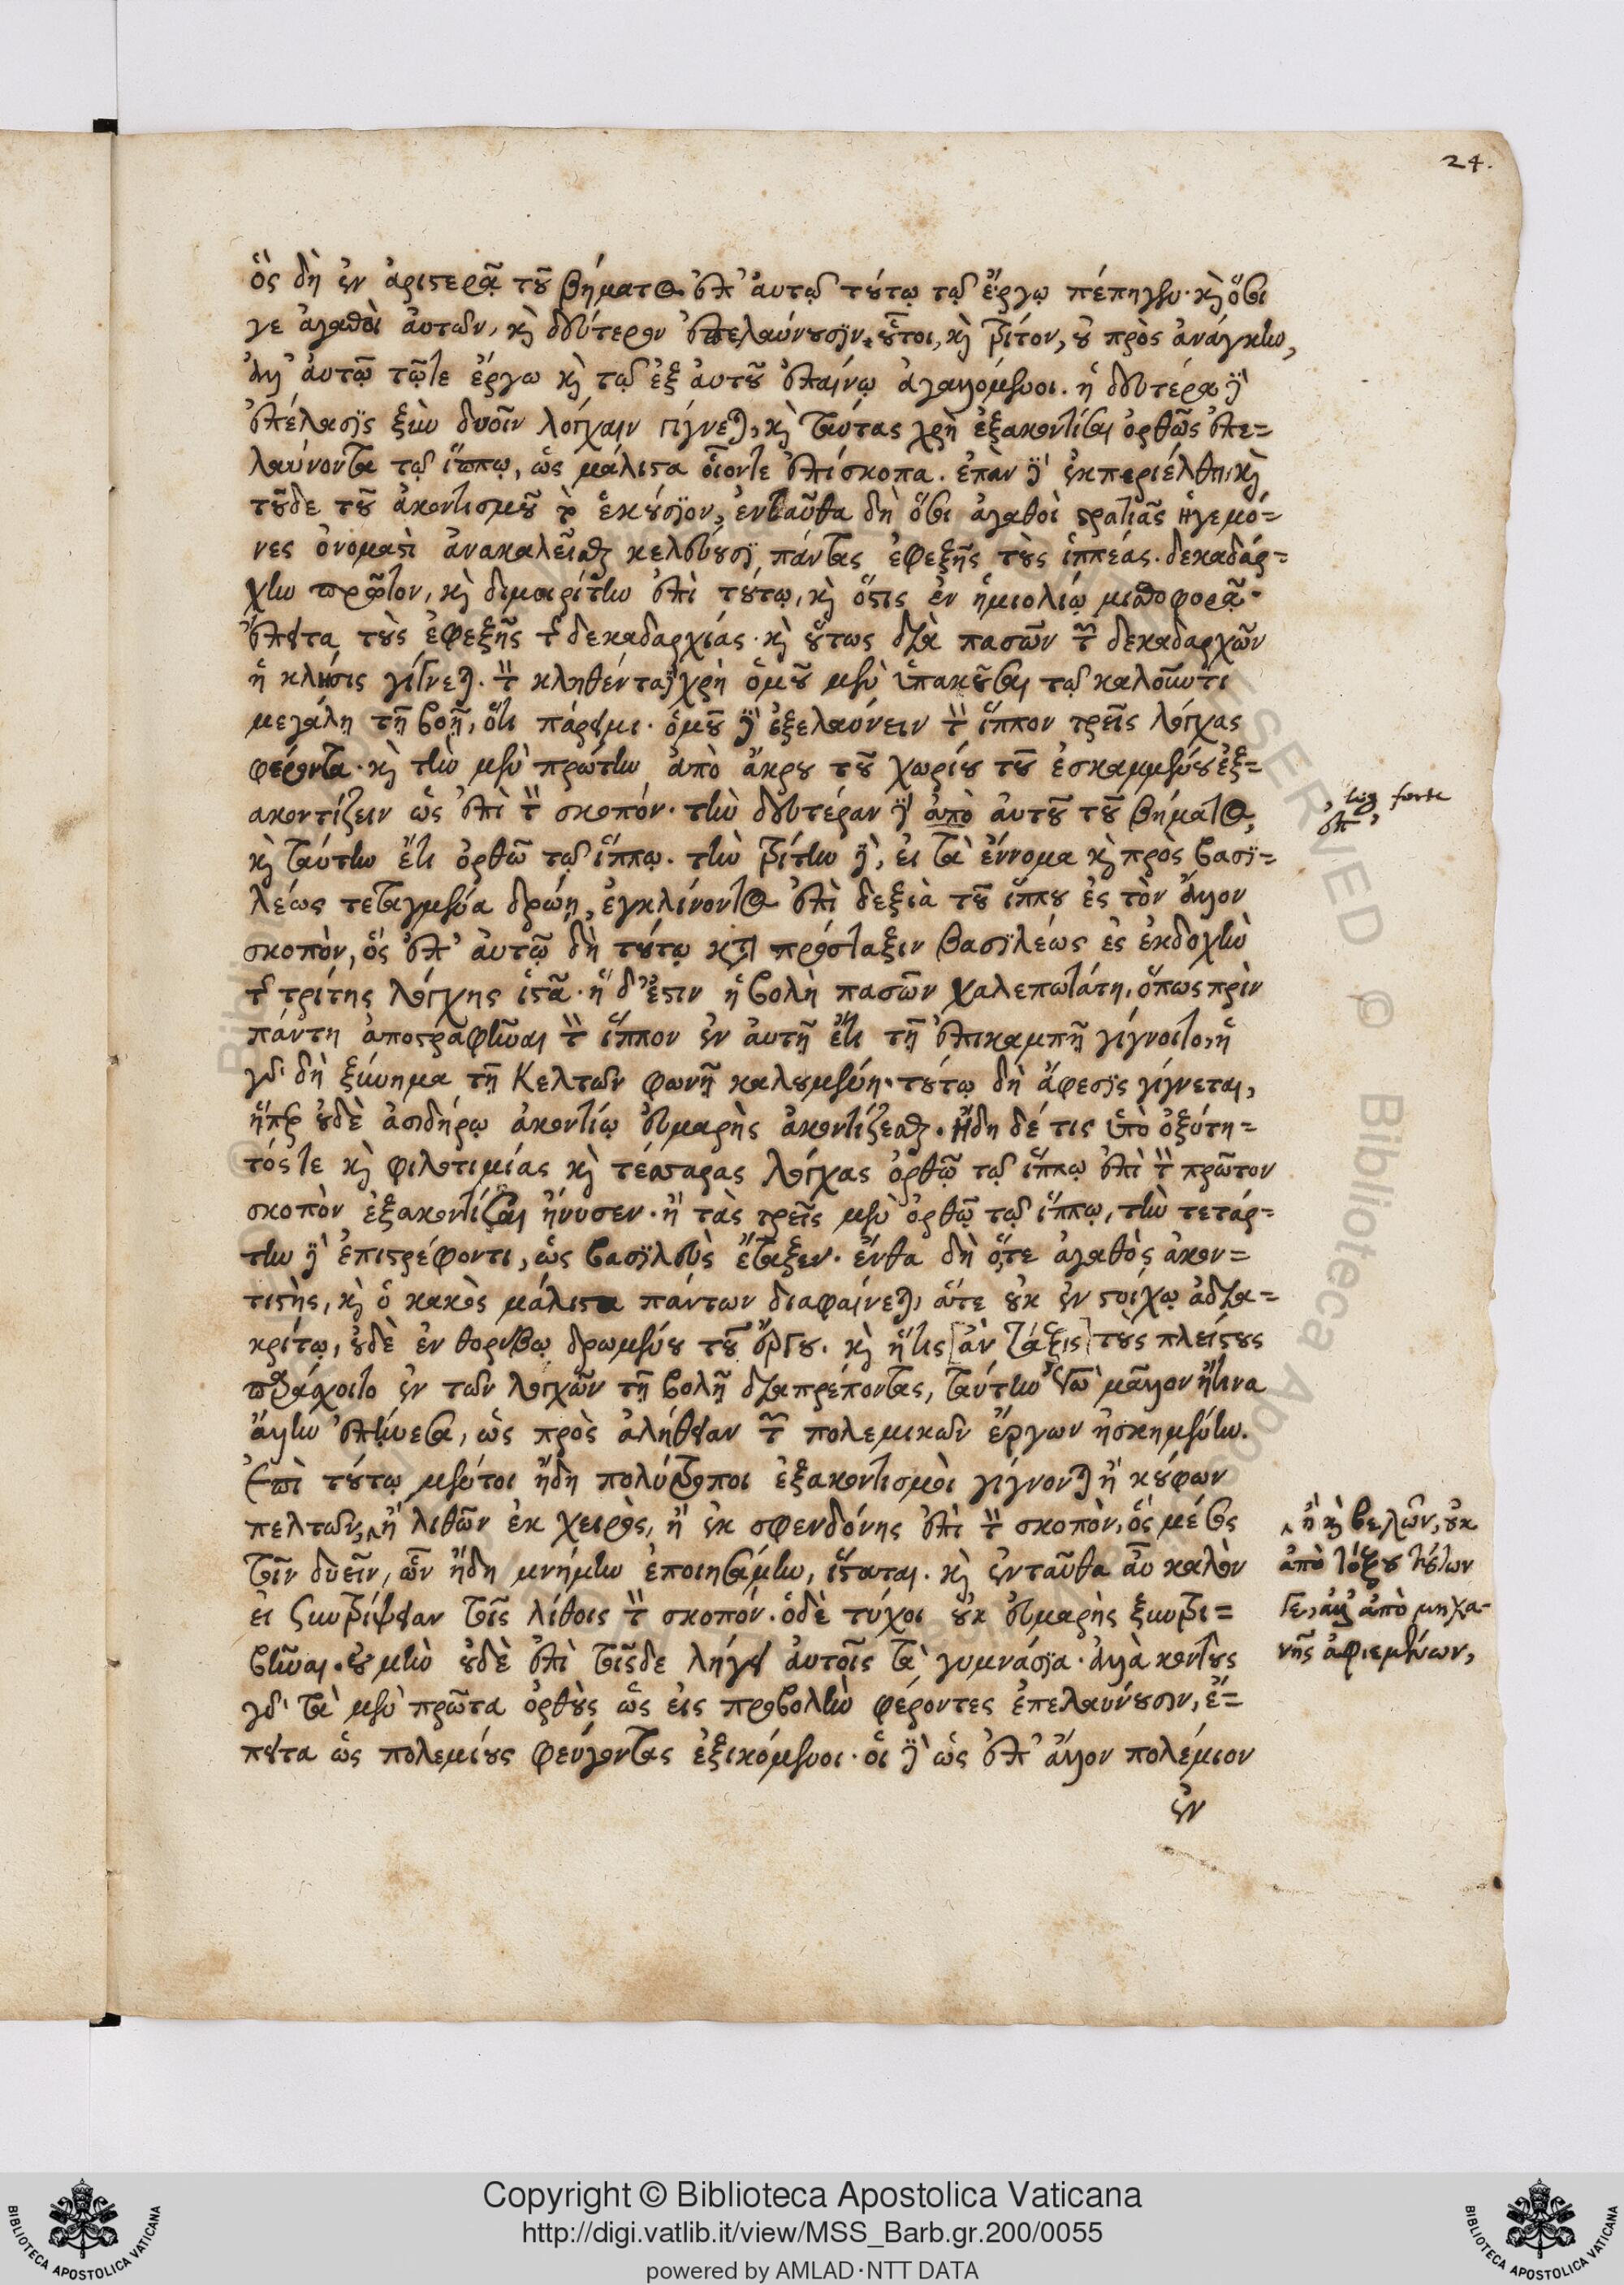 24.
ὃς δὴ ἐν ἀριστερᾷ τοῦ βήματος ἐπ' ἀυτῷ τούτῳ τῷ ἔργῳ πέπηγεν. καὶ ὅσοι
γε ἀγαθοὶ ἀυτῶν, καὶ δεύτερον ἐπελαύνουσϊν οὗτοι, καὶ τρίτον, οὐ πρὸς ἀνάγκην,
ἀλλ' ἀυτῷ τῷτε ἔργω καὶ τῷ ἐξ ἀυτοῦ ἐπαίνῳ ἀγαλλόμενοι. ἡ δευτέρα δὲ
ἐπέλασϊς ξὺν δυοῖν λόγχαιν γίγνεται, καὶ ταύτας χρὴ ἐξακοντίσαι ὀρθῶς ἐπε=
λαύνοντα τῷ ἵππῳ, ὡς μάλιστα οἷοντε ἐπίσκοπα. ἐπὰν δὲ ἐκπεριέλθῃ καὶ
τοῦδε τοῦ ἀκοντισμοῦ τὸ ἑκούσϊον, ἐνταῦθα δὴ ὅσοι ἀγαθοὶ στρατιᾶς ἡγεμό=
νες ὀνομαστὶ ἀνακαλεῖσθαι κελεύουσϊ πάντας ἐφεξῆς τοὺς ἱππεάς. δεκαδάρ=
χην πρῶτον, καὶ διμοιρίτην ἐπὶ τούτῳ, καὶ ὅστις ἐν ἡμιολίῳ μισθοφορᾷ.
ἔπειτα τοὺς ἐφεξῆς τῆς δεκαδαρχίας. καὶ οὕτως διὰ πασῶν τῶν δεκαδαρχῶν
ἡ κλῆσις γίγνεται. τὸν κληθέντα δὲ χρὴ ὁμοῦ μὲν ὑπακοῦσαι τῷ καλοῦντι
μεγάλῃ τῇ βοῇ, ὅτι πάρειμι. ὁμοῦ δὲ ἐξελαύνειν τὸν ἵππον τρεῖς λόγχας
φέροντα. καὶ τὴν μὲν πρώτην ἀπὸ ἄκρου τοῦ χωρίου τοῦ ἐσκαμμένου ἐξ=
ακοντίζειν ὡς ἐπὶ τὸν σκοπόν. τὴν δευτέραν δὲ ἀπὸ ἀυτοῦ τοῦ βήματος,
leg. forte
ἐπ'
καὶ ταύτην ἔτι ὀρθῶ τῷ ἵππῳ. τὴν τρίτην δὲ, ἐι τὰ ἔννομα καὶ πρὸς βασϊ=
λέως τεταγμένα δρῴη, ἐγκλίνοντος ἐπὶ δεξιὰ τοῦ ἵππου ἐς τὸν ἄλλον
σκοπὸν, ὃς ἐπ' ἀυτῷ δὴ τούτῳ κατὰ πρόσταξιν βασϊλέως ἐς ἐκδοχὴν
τῆς τρίτης λόγχης ἱστᾶ. ἥ δ' ἔστιν ἡ βολὴ πασῶν χαλεπωτάτη, ὅπως πρὶν
πάντη ἀποστραφῆναι τὸν ἵππον ἐν ἀυτῇ ἔτι τῇ ἐπικαμπῇ γίγνοιτο, ἡ
γὰρ δὴ ξύνημα τῇ Κελτῶν φωνῇ καλουμένη. τούτῳ δὴ ἄφεσϊς γίγνεται,
ἥπερ οὐδὲ ἀσιδήρῳ ἀκοντίῳ ἐυμαρὴς ἀκοντίζεσθαι. Ἤδη δέ τις ὑπὸ ὀξύτη=
τόςτε καὶ φιλοτιμίας καὶ τέσσαρας λόγχας ὀρθῷ τῷ ἵππῳ ἐπὶ τὸν πρῶτον
σκοπὸν ἐξακοντίσαι ἤνυσεν. ἢ τὰς τρεῖς μὲν ὀρθῷ τῷ ἵππῳ, τὴν τετάρ=
την δὲ ἐπιστρέφοντι, ὡς βασϊλεὺς ἔταξεν. ἔνθα δὴ ὅ,τε ἀγαθὸς ἀκον=
τιστὴς, καὶ ὁ κακὸς μάλιστα πάντων διαφαίνεται, ἅτε οὐκ ἐν στοίχῳ ἀδια=
κρίτῳ, οὐδὲ ἐν θορύβῳ δρωμένου τοῦ ἔργου. καὶ ἥτις [ἂν τάξις] τοὺς πλείστους
παράσχοιτο ἐν τῶν λογχῶν τῇ βολῇ διαπρέποντας, ταύτην ἐγὼ μᾶλλον ἥτινα
ἄλλην ἐπῄνεσα, ὡς πρὸς ἀλήθειαν τῶν πολεμικῶν ἔργων ἠσκημένην.
Ἐπὶ τούτῳ μέντοι ἤδη πολύτροποι ἐξακοντισμοὶ γίγνονται ἢ κούφων
πελτῶν, ἢ λιθῶν ἐκ χειρὸς, ἢ ἐκ σφενδόνης ἐπὶ τὸν σκοπὸν, ὃς μέσος
ἢ καὶ βελῶν, οὐκ
τοῖν δυεῖν, ὧν ἤδη μνήμην ἐποιησάμην, ἵσταται. καὶ ἐνταῦθα ἂυ καλὸν
ἀπὸ τόξου τούτων
ἐι ξυντρίψειαν τοῖς λίθοις τὸν σκοπόν. ὁδὲ τύχοι οὐκ ἐυμαρὴς ξυντρι=
γε, ἀλλ' ἀπὸ μηχα-
βῆναι. οὐ μὴν οὐδὲ ἐπὶ τοῖσδε λήγει ἀυτοῖς τὰ γυμνάσϊα. ἀλλὰ κοντοὺς
νῆς ἀφιεμένων,
γὰρ τὰ μὲν πρῶτα ὀρθοὺς ὡς εἰς προβολὴν φέροντες ἐπελαύνουσιν, ἔ=
πειτα ὡς πολεμίους φεύγοντας ἐξικόμενοι. ὁἱ δὲ ὡς ἐπ' ἄλλον πολέμιον
ἐν
Copyright © Biblioteca Apostolica Vaticana
http://digi.vatlib.it/view/MSS_Barb.gr.200/0055
powered by AMLAD·NTT DATA
BIBLIOTECA APOSTOLICA VATICANA
BIBLIOTECA APOSTOLICA VATICANA